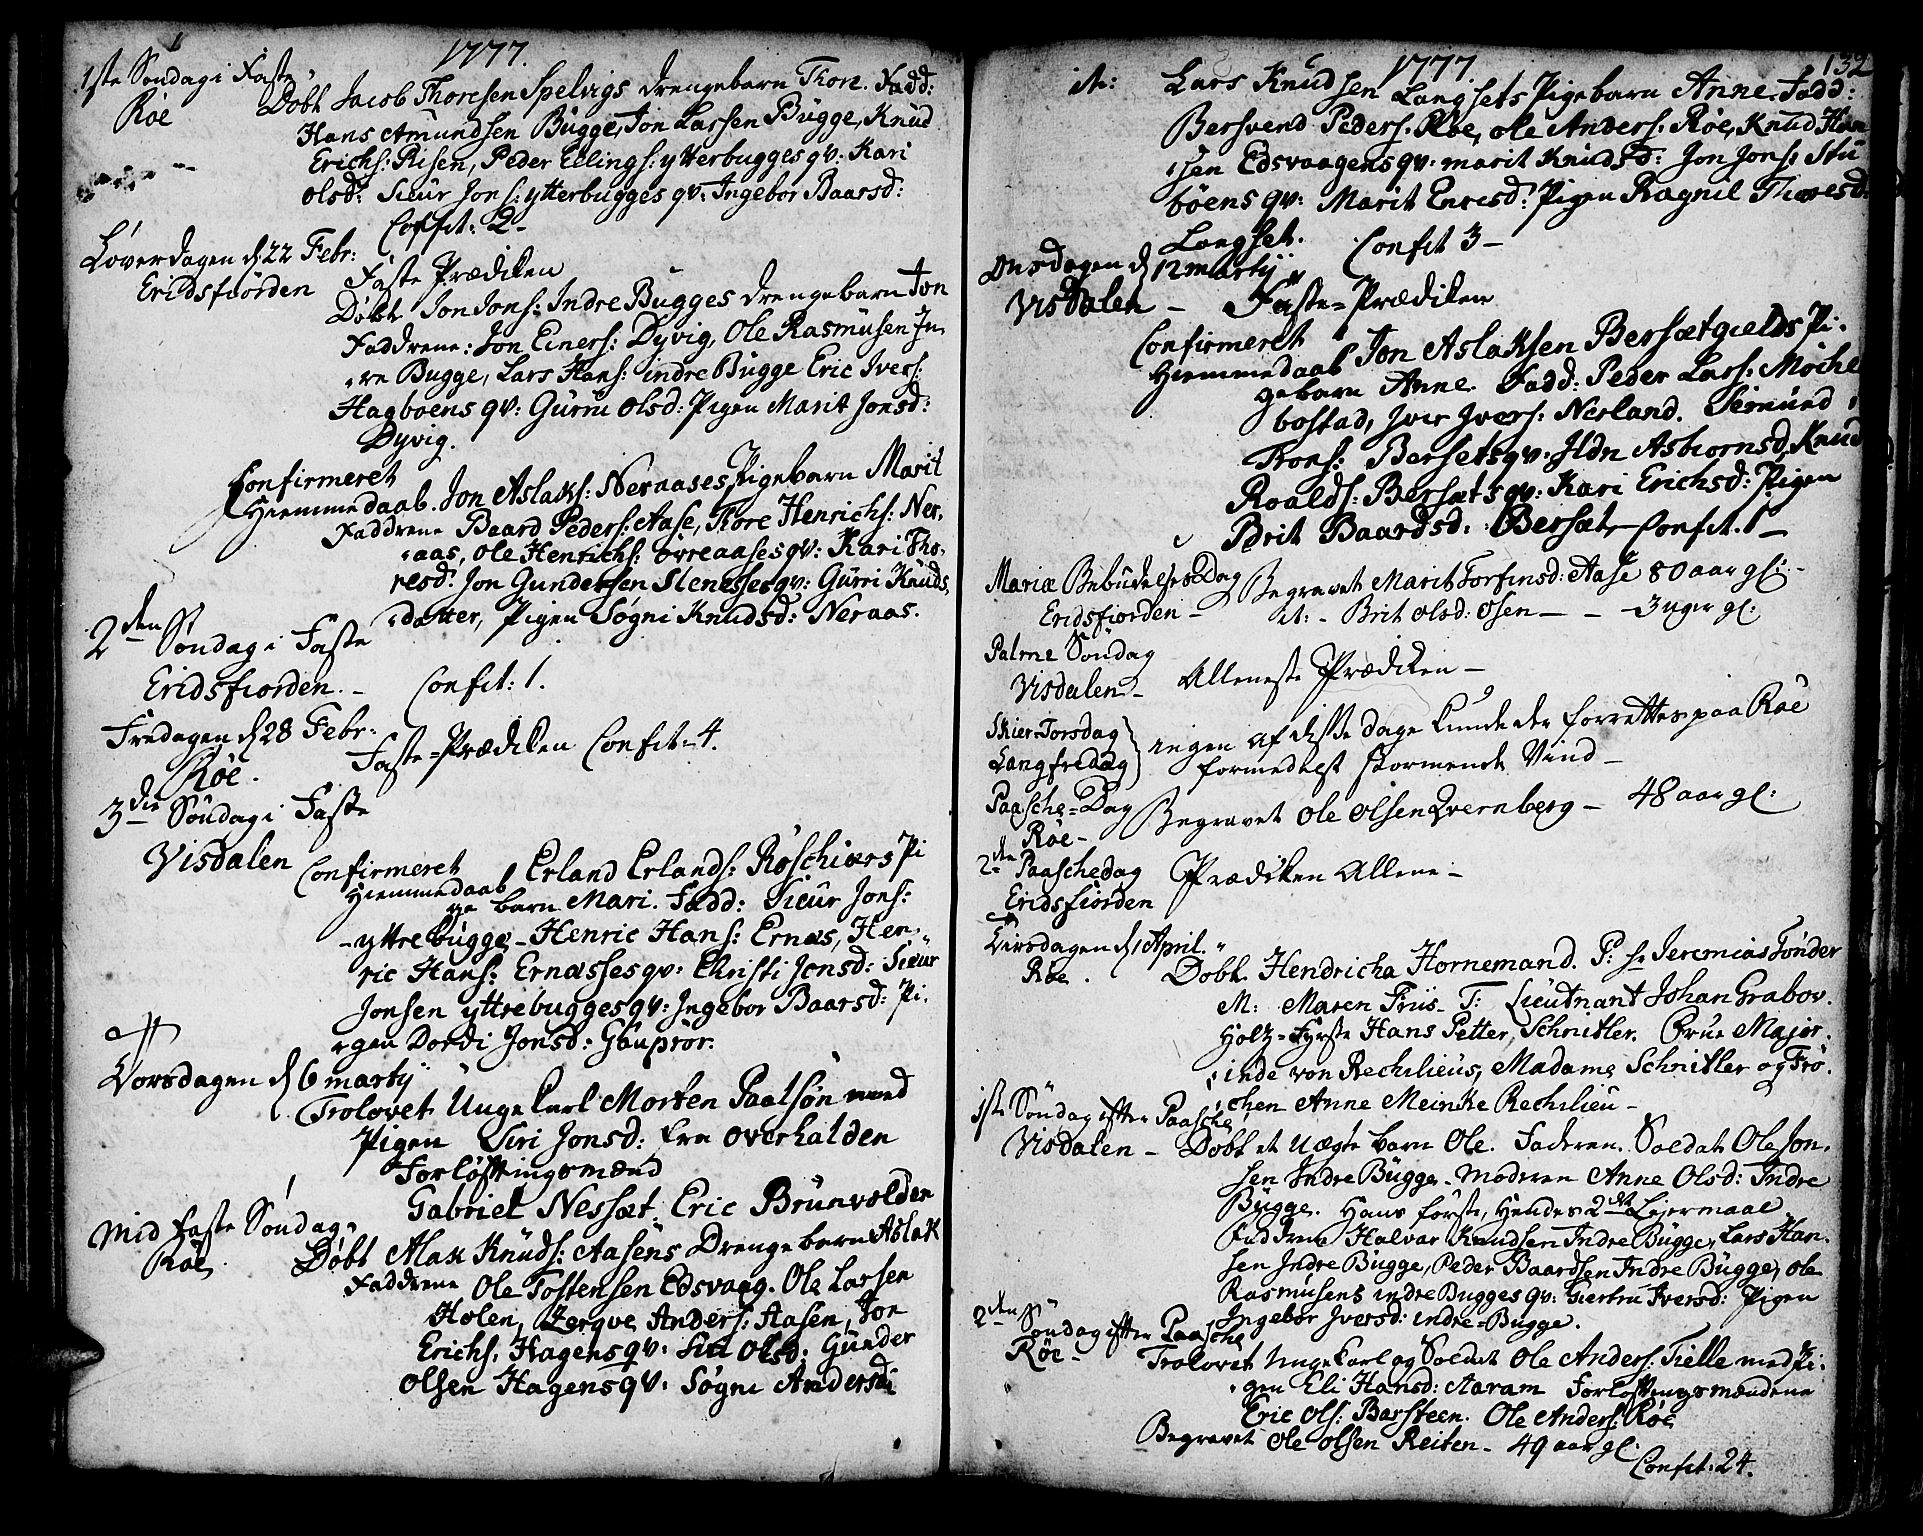 1777.
1ste Søndag i Faste
Røe
Døbt Jacob Thoresen Spelvigs drengebarn Thor. Fadd:
Hans Amundsen Bugge, Jon Larsen Bugge, Knud
Erichs: Risen, Peder Ellings: ytterbugges qv: Kari
olsd: Siur Jons: ytterbugges qv: Ingebor Baarsd:
Confit: 2-
Løverdagen d 22 Febr:
Eridsfiorden
Faste Prædiken
Døbt Jon Jons: Indre Bugges drengebarn Jon
Faddrene: Jon Einers: Dyvig, Ole Rasmusen In-
dre Bugge, Lars Hans: indre Bugge Eric Ivers:
Hagboens qv: Gurru olsd: Pigen Marit Jonsd:
Dyvig.
Confirmeret
Hiemmedaab. Jon Aslaks: Neraases Pigebarn Marit
Faddrene Baard Peders: Aase, Thore Henrichs: Ner-
aas, ole Henrichs: øvreaases qv: Kari Tho-
resd: Jon Gundersen Slensses qv: Gurri Knuds
datter, Pigen Søgni Knudsd: Neraas.
2den Søndag i Faste
Eridsfiorden. - Confit: 1.
Fredagen d 28 Febr:
Røe.
Faste-Prædiken Confit: 4.
3die Søndag i Faste
Visdalen
Confirmeret
Hiemmedaab Erland Erlands: Røschiærs Pi
ge barn Mari. Fadd: Siur Jons:
-yttre bugge- Henric Hans: Ernæs, Hen-
ric Hans: Ernæsses qv: Christi Jonsd: Siur
Jonsen yttrebugges qv: Ingebor Baarsd: Pi-
gen Dordi Jonsd: Gauprør.
Torsdagen d 6 martij
Trolovet Unge karl Morten Paalsøn med
Pigen Siri Jonsd: fra Overhalden
Forløftningsmænd
Gabriel Nessæt, Eric Brunvolden
Mid faste Søndag
Røe.
Døbt Aslak Knuds: Aasens Drengebarn Aslak
Faddrene Ole Tostensen Edsvaag. Ole Larsen
Holen, Zerqve Anders: Aasen, Jon
Erichs. Hagens qv: Siri Olsd: Gunder
Olsen Hagens qv: Søgni Andersd:
1777.
132
it: Lars Knudsen Langsets Pigebarn Anne. Fadd:
Bersvend Peders: Røe, ole Anders: Røe, Knud Han
sen Edsvaagens qv: marit Knudsd: Jon Jons: Stu
bøens qv: Marit Enresd: Pigen Ragnil Thoresd:
Langset. Confit 3-
Onsdagen d 12 martij
Visdalen - Faste-Prædiken
Confirmeret
Hiemmedaab Jon Aslaksen Bersætgields Pi-
gebarn Anne. Fadd: Peder Lars: Møche
bostad, Iver Ivers: Nerland. Siemund
Trons: Bersets qv: Ildri Asbiornsd, Knud
Roalds: Bersæts qv: Kari Erichsd: Pigen
Brit Baardsd: Bersæt Confit: 1-
Mariæ Bebudelses Dag
Eridsfiorden -
Begravet Marit Torfinsd: Aase 80 aar gl: -
it: - Brit olsd: Osen - - 3 uger gl:
Palme Søndag
Visdalen -
Alleneste Prædiken -
Skier-Torsdag
Langfredag
ingen af disse dage kunde der forrettes paa Røe
formedelst stormende Vind -
Paasche-Dag
Røe -
Begravet Ole Olsen Qvernberg - 48 aar gl:
2den Paaschedag
Eridsfiorden
Prædiken Allene -
Tirsdagen d 1 April.
Røe.
Døbt. Hendricha Hornemand. P: hr Jeremias Tønder
M: Maren Friis. T: Lieutnant Johan Grabov.
Holz-Fyrste Hans Petter Schnitler. Frue Major-
inde von Rechilieus, Madame Schnitler og Frø-
chen Anne Meinke Rechilieu -
1ste Søndag efter Paasche
Visdalen - Døbt et uægte barn Ole. Faderen. Soldat Ole Jon-
sen Indre Bugge. Moderen Anne Olsd: Indre
Bugge. Hans første, Hendes 2det Leiermaal
Faddrene Halvar Knudsen Indre Bugge, Lars Han-
sen Indre Bugge, Peder Baardsen Indre Bugge, ole
Rasmusens indre Bugges qv: Giertru Iversd: Pigen
Ingebor Iversd: indre-Bugge.
2den Søndag efter Paasche
Røe -
Trolovet Ungekarl og Soldat Ole Anders: Tielle med Pi-
gen Eli Hansd: Aaram Forløftningsmændene
Eric Ols: Barsteen. Ole Anders: Røe
Begravet Ole Olsen Reiten - 49 aar gl:
Confit: 24.